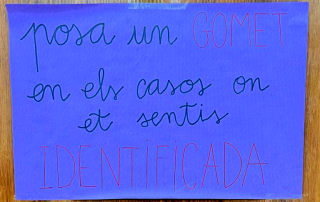 posa un GOMET
en els casos on
et sentis
IDENTIFICADA